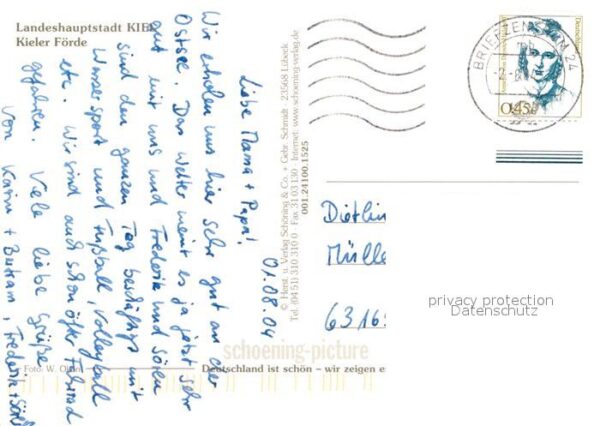 Landeshauptstadt KIEL
Kieler Förde
01.08.04
Liebe Mama + Papa!
Wir erholen uns hier sehr gut an der
Ostsee. Das Wetter meint es ja jetzt sehr
gut mit uns und Frederik und Sören
sind den ganzen Tag beschäftigt mit
Wassersport und Fußball, Volleyball
etc. Wir sind auch schon öfter Fahrrad
gefahren. Viele liebe Grüße
von Karin + Frederik + Sören
© Herst. u. Verlag Schöning & Co. + Gebr. Schmidt · 23568 Lübeck
Tel. (04 51) 310 310 0 · Fax 31 03 130 · Internet: www.schoening-verlag.de
001.24100.1525
BRIEFZENTRUM 24
Deutschland
0,45€
Mülle
6316
privacy protection
Datenschutz
schoening-picture
Foto: W. 
Deutschland ist schön – wir zeigen e